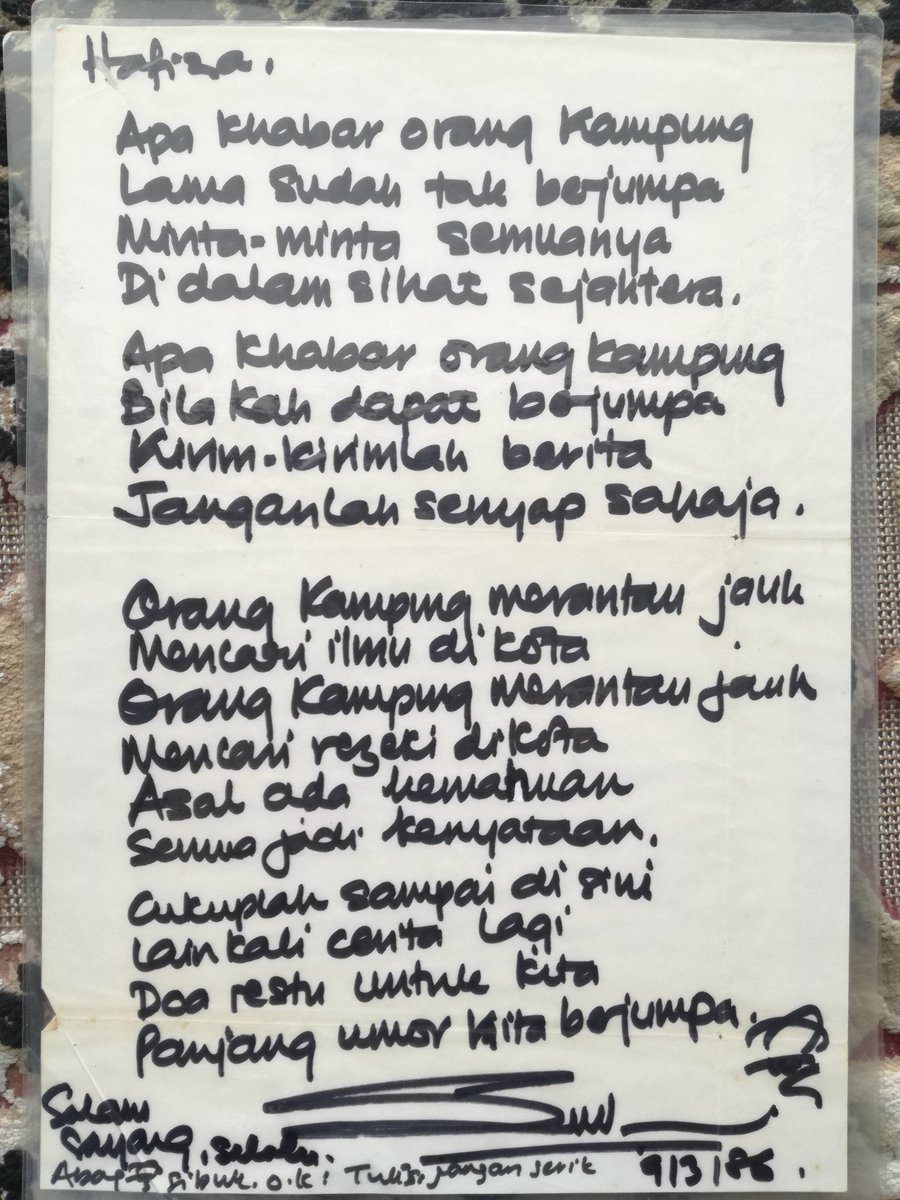 Hafiza.
Apa khabar orang Kampung
Lama sudah tak berjumpa
Minta-minta semuanya
Di dalam sihat sejahtera.
Apa khabar orang kampung
Bila kah dapat berjumpa
Kirim-kirimlah berita
Janganlah senyap sahaja.
Orang Kampung merantau jauh
Mencari ilmu di kota
Orang Kampung merantau jauh
Mencari rezeki di kota
Asal ada kemahuan
Semua jadi kenyataan.
Cukuplah sampai di sini
Lain kali cerita lagi
Doa restu untuk kita
Panjang umor kita berjumpa.
Salam
Sayang, selalu.
9/3/86.
Abang sibuk. o.k! Tulis jangan serik